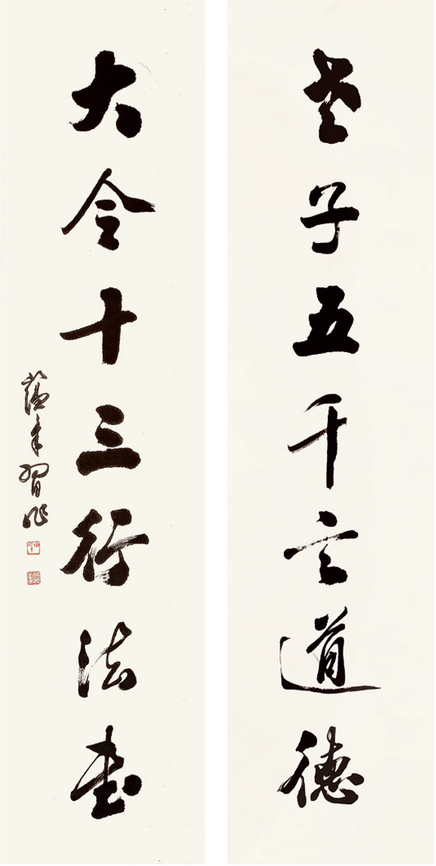 老子五千言道德
大令十三行法書
蘊年習作